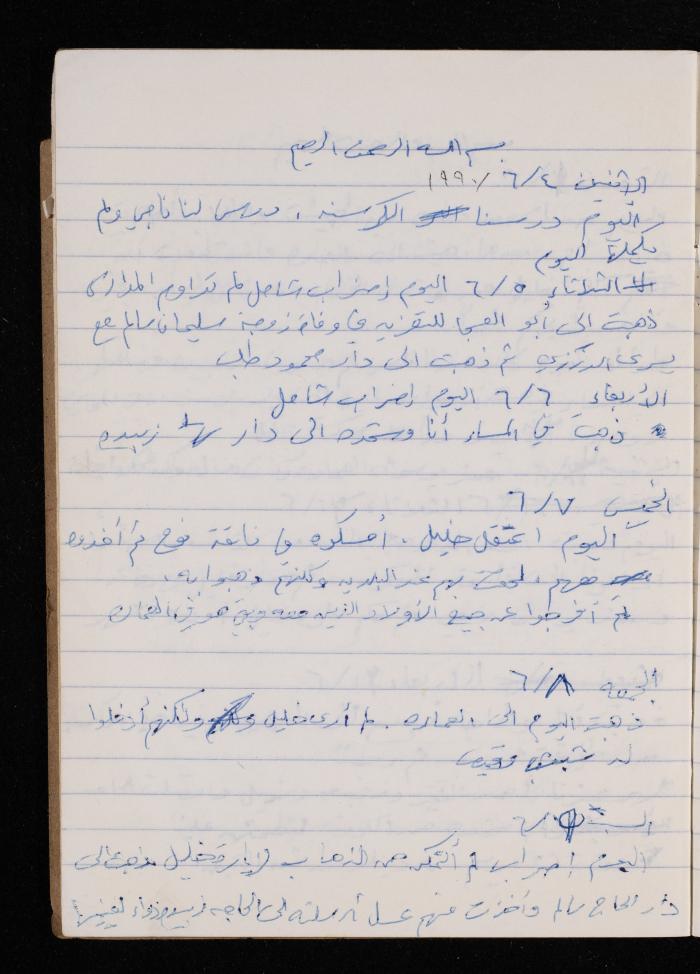 بسم الله الرحمن الرحيم
الاثنين ٦/٤ /١٩٩٠
اليوم درسنا الكرسنه، درس لنا ناجي ولم
يكملها اليوم
الثلاثاء ٦/٥ اليوم إضراب شامل لم تداوم المدارس
ذهبت الى أبو العجا للتعزيه في وفاة زوجة سليمان سالم مع
يسرى ثم ذهبت الى دار محمود طلب
الأربعاء ٦/٦ اليوم إضراب شامل
ذهبت في المساء أنا الى دار زبيده
الخميس ٦/٧
اليوم اعتقل خليل، أمسكوه في ثم أخذوه
لحقت بهم عند البلديه ولكنهم ذهبوا به،
ثم أفرجوا عن جميع الأولاد الذين معه وبقي هو في العماره
الجمعه ٦/٨
ذهبت اليوم الى العماره. لم أرى خليل ولكنهم أدخلوا
له
السبت ٦/٩
اليوم إضراب لم أتمكن من الذهاب لزيارة خليل ذهبت الى
دار الحاج سالم وأخذت منهم عسل أرسلته الى الحاجه زبيده دواء لعينيها